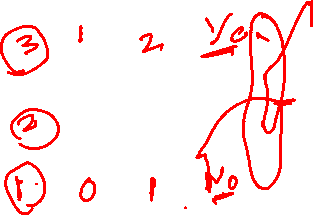 3 1 2 Yes
2
1. 0 1. No